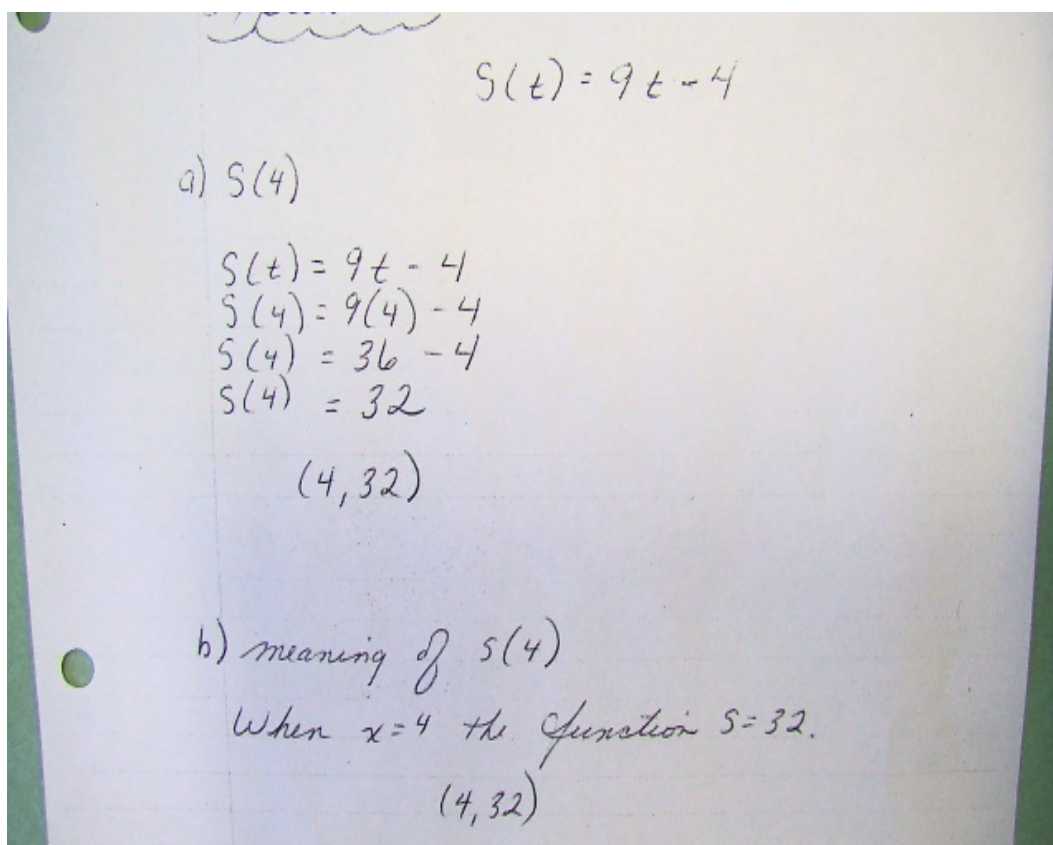 S(t) = 9t - 4
a) S(4)
S(t) = 9t - 4
S(4) = 9(4) - 4
S(4) = 36 - 4
S(4) = 32
(4, 32)
b) meaning of S(4)
When x = 4 the function S = 32.
(4, 32)